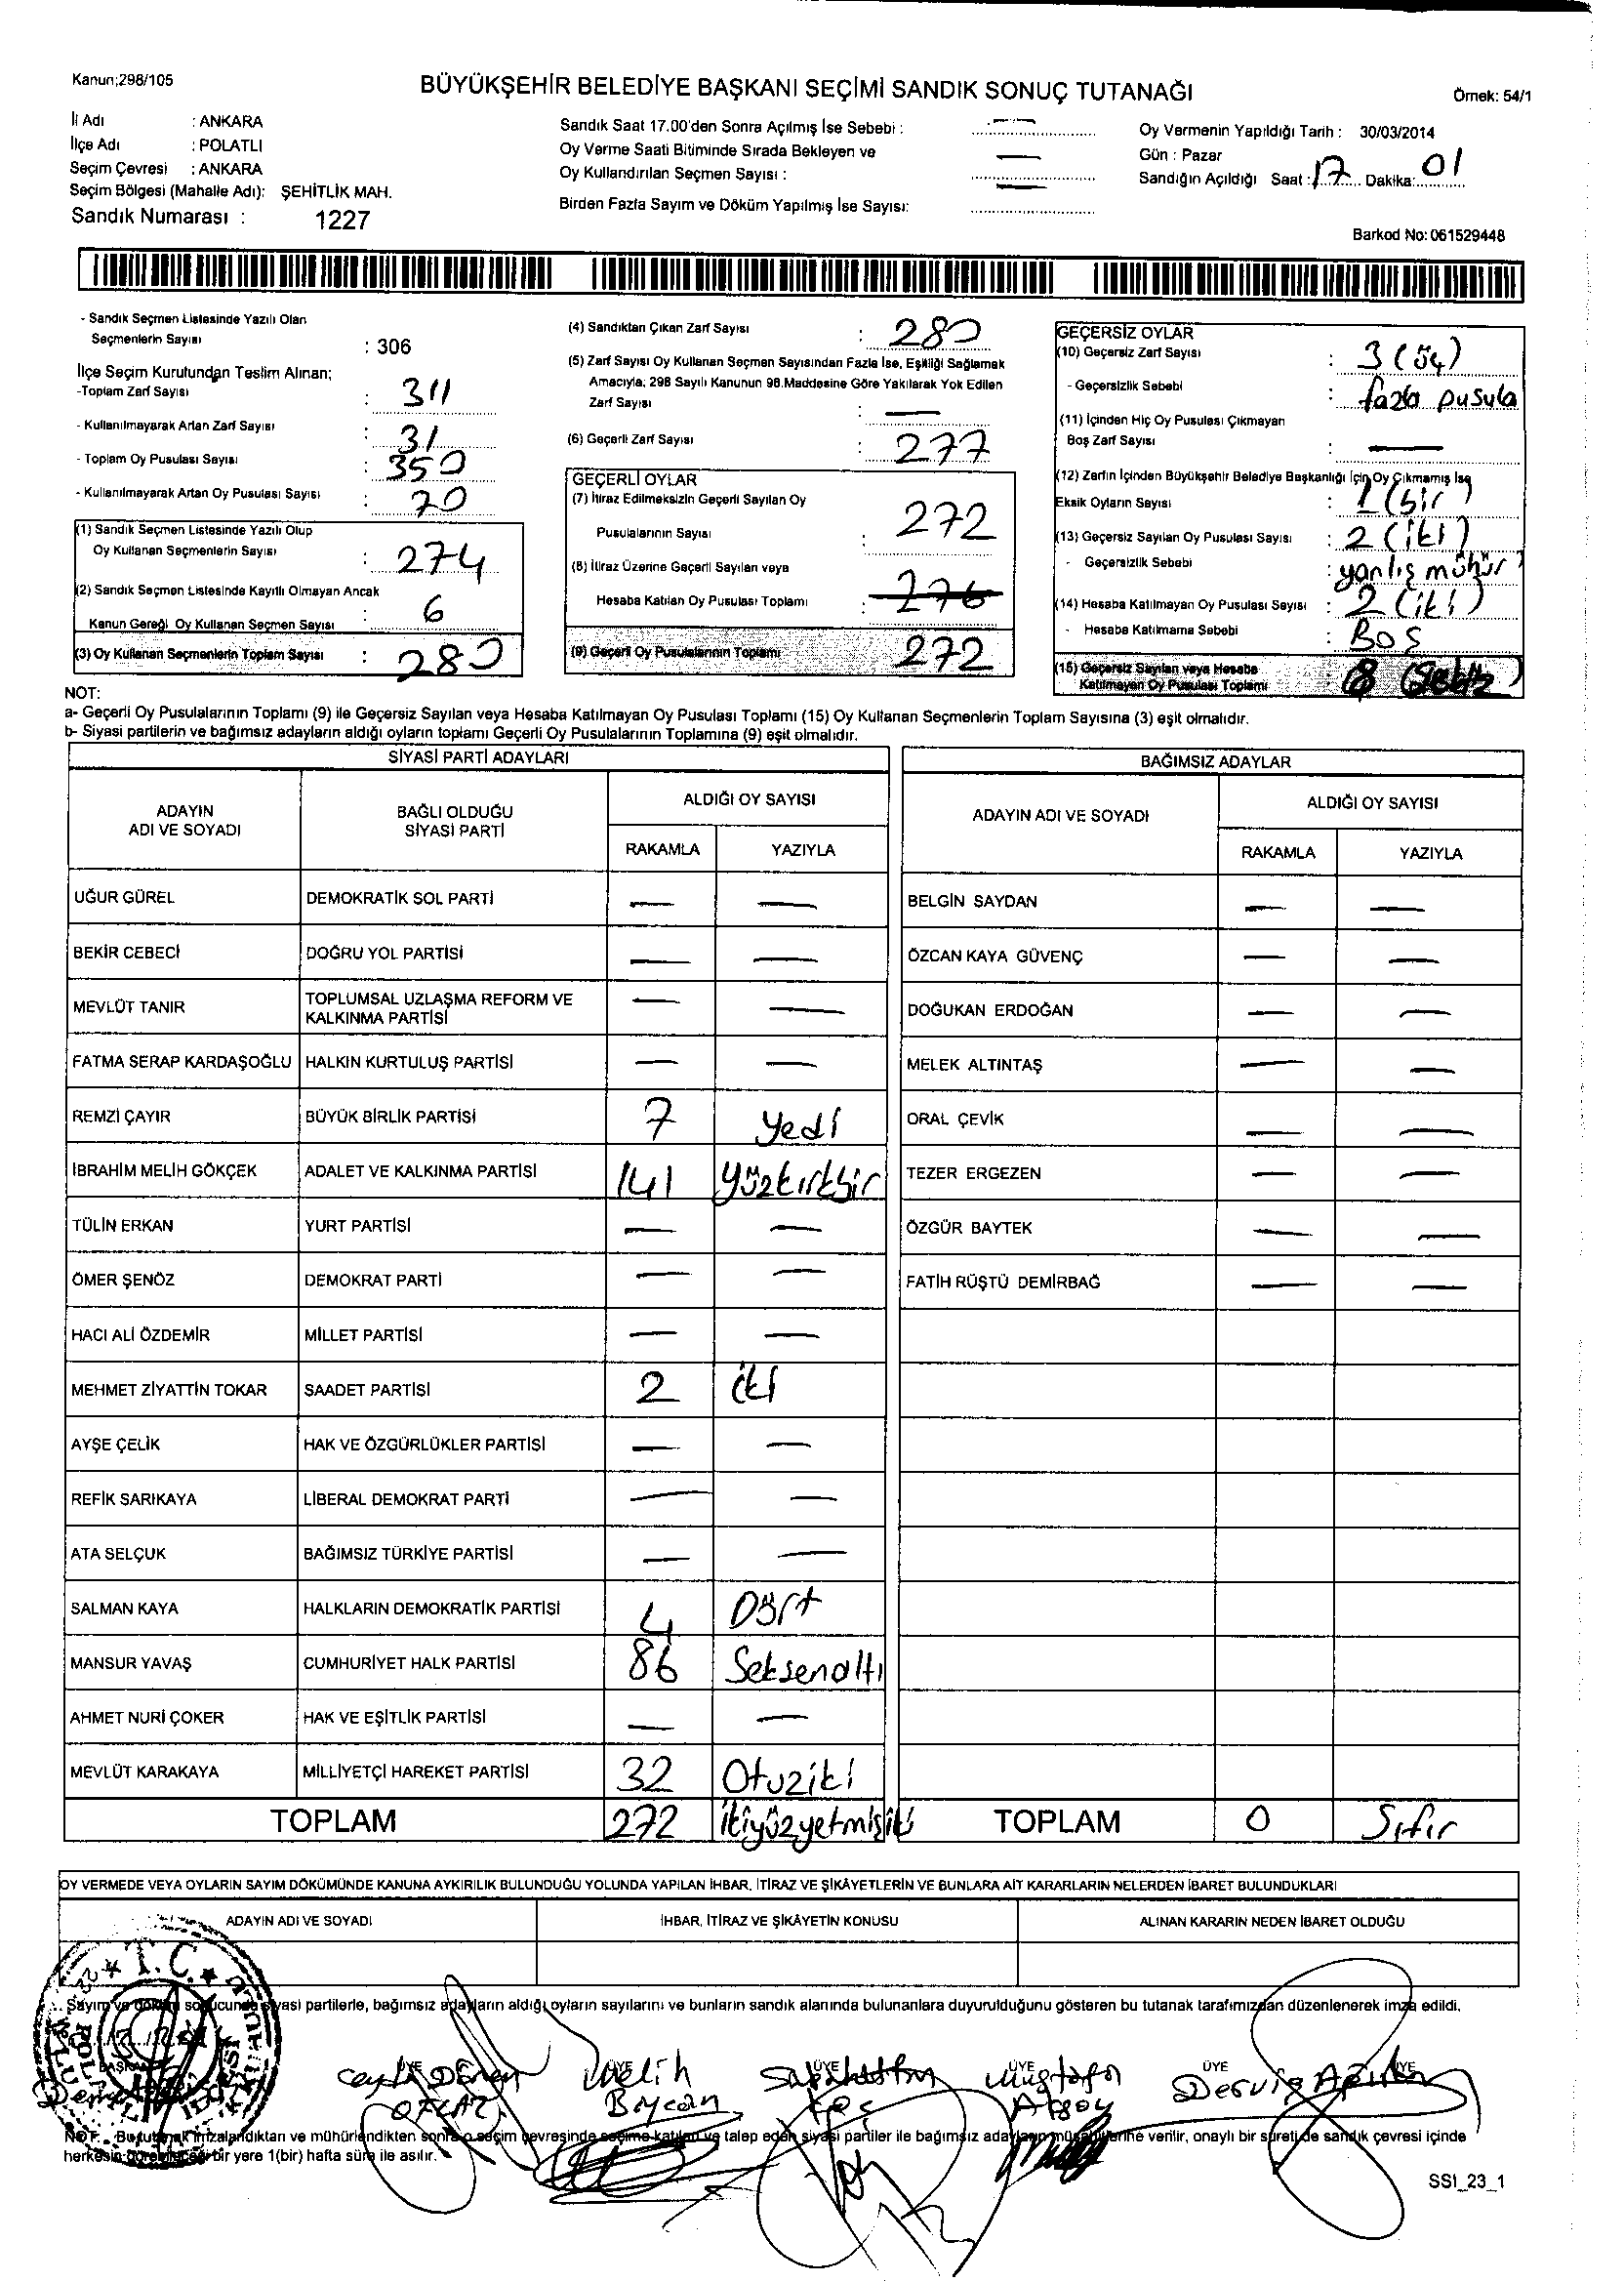 Kanun;298/105
BÜYÜKŞEHİR BELEDİYE BAŞKANI SEÇİMİ SANDIK SONUÇ TUTANAĞI
Örnek: 54/1
İl Adı : ANKARA
İlçe Adı : POLATLI
Seçim Çevresi : ANKARA
Seçim Bölgesi (Mahalle Adı): ŞEHİTLİK MAH.
Sandık Numarası : 1227
Sandık Saat 17.00'den Sonra Açılmış İse Sebebi : —
Oy Verme Saati Bitiminde Sırada Bekleyen ve
Oy Kullandırılan Seçmen Sayısı : —
Birden Fazla Sayım ve Döküm Yapılmış İse Sayısı: —
Oy Vermenin Yapıldığı Tarih : 30/03/2014
Gün : Pazar
Sandığın Açıldığı Saat : 17 Dakika: 01
Barkod No: 061529448
- Sandık Seçmen Listesinde Yazılı Olan
Seçmenlerin Sayısı : 306
İlçe Seçim Kurulundan Teslim Alınan;
-Toplam Zarf Sayısı : 311
- Kullanılmayarak Artan Zarf Sayısı : 31
- Toplam Oy Pusulası Sayısı : 350
- Kullanılmayarak Artan Oy Pusulası Sayısı : 70
(1) Sandık Seçmen Listesinde Yazılı Olup
Oy Kullanan Seçmenlerin Sayısı : 274
(2) Sandık Seçmen Listesinde Kayıtlı Olmayan Ancak
Kanun Gereği Oy Kullanan Seçmen Sayısı : 6
(3) Oy Kullanan Seçmenlerin Toplam Sayısı : 280
(4) Sandıktan Çıkan Zarf Sayısı : 280
(5) Zarf Sayısı Oy Kullanan Seçmen Sayısından Fazla İse, Eşitliği Sağlamak
Amacıyla; 298 Sayılı Kanunun 98.Maddesine Göre Yakılarak Yok Edilen
Zarf Sayısı : —
(6) Geçerli Zarf Sayısı : 277
GEÇERLİ OYLAR
(7) İtiraz Edilmeksizin Geçerli Sayılan Oy
Pusulalarının Sayısı : 272
(8) İtiraz Üzerine Geçerli Sayılan veya
Hesaba Katılan Oy Pusulası Toplamı : 276
(9) Geçerli Oy Pusulalarının Toplamı 272
GEÇERSİZ OYLAR
(10) Geçersiz Zarf Sayısı : 3 (üç)
- Geçersizlik Sebebi : fazla pusula
(11) İçinden Hiç Oy Pusulası Çıkmayan
Boş Zarf Sayısı : —
(12) Zarfın İçinden Büyükşehir Belediye Başkanlığı İçin Oy Çıkmamış İse
Eksik Oyların Sayısı : 1 (bir)
(13) Geçersiz Sayılan Oy Pusulası Sayısı : 2 (iki)
- Geçersizlik Sebebi : yanlış mühür
(14) Hesaba Katılmayan Oy Pusulası Sayısı : 2 (iki)
- Hesaba Katılmama Sebebi : BOŞ
(15) Geçersiz Sayılan veya Hesaba
Katılmayan Oy Pusulası Toplamı 8 (Sekiz)
NOT:
a- Geçerli Oy Pusulalarının Toplamı (9) ile Geçersiz Sayılan veya Hesaba Katılmayan Oy Pusulası Toplamı (15) Oy Kullanan Seçmenlerin Toplam Sayısına (3) eşit olmalıdır.
b- Siyasi partilerin ve bağımsız adayların aldığı oyların toplamı Geçerli Oy Pusulalarının Toplamına (9) eşit olmalıdır.
SİYASİ PARTİ ADAYLARI
ADAYIN ADI VE SOYADI BAĞLI OLDUĞU SİYASİ PARTİ ALDIĞI OY SAYISI
RAKAMLA YAZIYLA
UĞUR GÜREL DEMOKRATİK SOL PARTİ — —
BEKİR CEBECİ DOĞRU YOL PARTİSİ — —
MEVLÜT TANIR TOPLUMSAL UZLAŞMA REFORM VE KALKINMA PARTİSİ — —
FATMA SERAP KARDAŞOĞLU HALKIN KURTULUŞ PARTİSİ — —
REMZİ ÇAYIR BÜYÜK BİRLİK PARTİSİ 7 Yedi
İBRAHİM MELİH GÖKÇEK ADALET VE KALKINMA PARTİSİ 141 Yüzkırkbir
TÜLİN ERKAN YURT PARTİSİ — —
ÖMER ŞENÖZ DEMOKRAT PARTİ — —
HACI ALİ ÖZDEMİR MİLLET PARTİSİ — —
MEHMET ZİYATTİN TOKAR SAADET PARTİSİ 2 iki
AYŞE ÇELİK HAK VE ÖZGÜRLÜKLER PARTİSİ — —
REFİK SARIKAYA LİBERAL DEMOKRAT PARTİ — —
ATA SELÇUK BAĞIMSIZ TÜRKİYE PARTİSİ — —
SALMAN KAYA HALKLARIN DEMOKRATİK PARTİSİ 4 Dört
MANSUR YAVAŞ CUMHURİYET HALK PARTİSİ 86 Seksenaltı
AHMET NURİ ÇOKER HAK VE EŞİTLİK PARTİSİ — —
MEVLÜT KARAKAYA MİLLİYETÇİ HAREKET PARTİSİ 32 Otuziki
TOPLAM 272 ikiyüzyetmişiki
BAĞIMSIZ ADAYLAR
ADAYIN ADI VE SOYADI ALDIĞI OY SAYISI
RAKAMLA YAZIYLA
BELGİN SAYDAN — —
ÖZCAN KAYA GÜVENÇ — —
DOĞUKAN ERDOĞAN — —
MELEK ALTINTAŞ — —
ORAL ÇEVİK — —
TEZER ERGEZEN — —
ÖZGÜR BAYTEK — —
FATİH RÜŞTÜ DEMİRBAĞ — —
TOPLAM 0 Sıfır
OY VERMEDE VEYA OYLARIN SAYIM DÖKÜMÜNDE KANUNA AYKIRILIK BULUNDUĞU YOLUNDA YAPILAN İHBAR, İTİRAZ VE ŞİKÂYETLERİN VE BUNLARA AİT KARARLARIN NELERDEN İBARET BULUNDUKLARI
ADAYIN ADI VE SOYADI İHBAR, İTİRAZ VE ŞİKÂYETİN KONUSU ALINAN KARARIN NEDEN İBARET OLDUĞU
T.C.
Sayım ve döküm sonucunda siyasi partilerle, bağımsız adayların aldığı oyların sayılarını ve bunların sandık alanında bulunanlara duyurulduğunu gösteren bu tutanak tarafımızdan düzenlenerek imza edildi.
ÜYE ÜYE ÜYE ÜYE ÜYE ÜYE
Melih Sabahattin Mustafa Derviş
Koç
NOT: Bu tutanak imzalandıktan ve mühürlendikten sonra o seçim çevresinde seçime katılan ve talep eden siyasi partiler ile bağımsız adayların müşahitlerine verilir, onaylı bir sureti de sandık çevresi içinde
herkesin görebileceği bir yere 1(bir) hafta süre ile asılır.
SSI_23_1